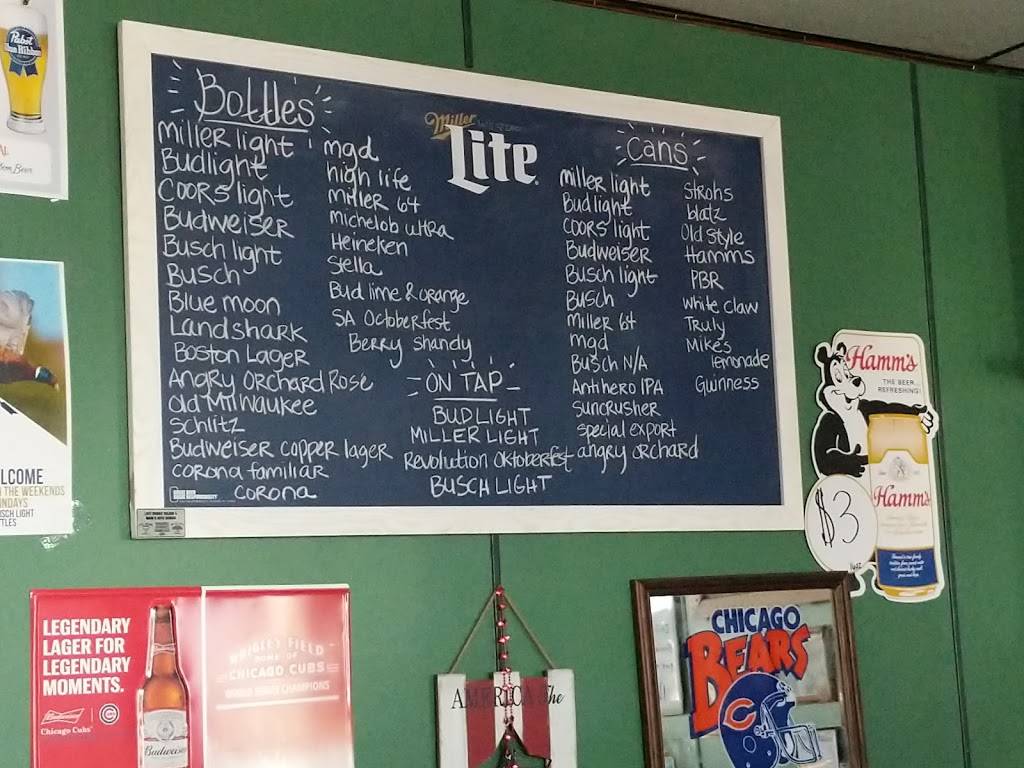 Pabst
Blue Ribbon
Bottles
miller light
Budlight
COORS light
Budweiser
Busch light
Busch
Blue moon
Landshark
Boston Lager
Angry Orchard Rose
Old Milwaukee
Schlitz
Budweiser copper lager
corona familiar
corona
mgd
high life
miller 64
michelob ultra
Heineken
Stella
Bud lime & orange
SA Octoberfest
Berry Shandy
Miller
Lite
ON TAP
BUDLIGHT
MILLER LIGHT
Revolution Oktoberfest
BUSCH LIGHT
cans
miller light
Budlight
COORS light
Budweiser
Busch light
Busch
Miller 64
mgd
Busch N/A
Antihero IPA
suncrusher
special export
angry orchard
Strohs
blatz
Old Style
Hamms
PBR
white claw
Truly
Mikes
lemonade
Guinness
Hamm's
THE BEER
REFRESHING!
Hamm's
$3
LCOME
THE WEEKENDS
NDAYS
SCH LIGHT
TTLES
LEGENDARY
LAGER FOR
LEGENDARY
MOMENTS.
Budweiser
Chicago Cubs
Budweiser
WRIGLEY FIELD
HOME OF
CHICAGO CUBS
WORLD SERIES CHAMPIONS
AMERICA the
CHICAGO
BEARS
C